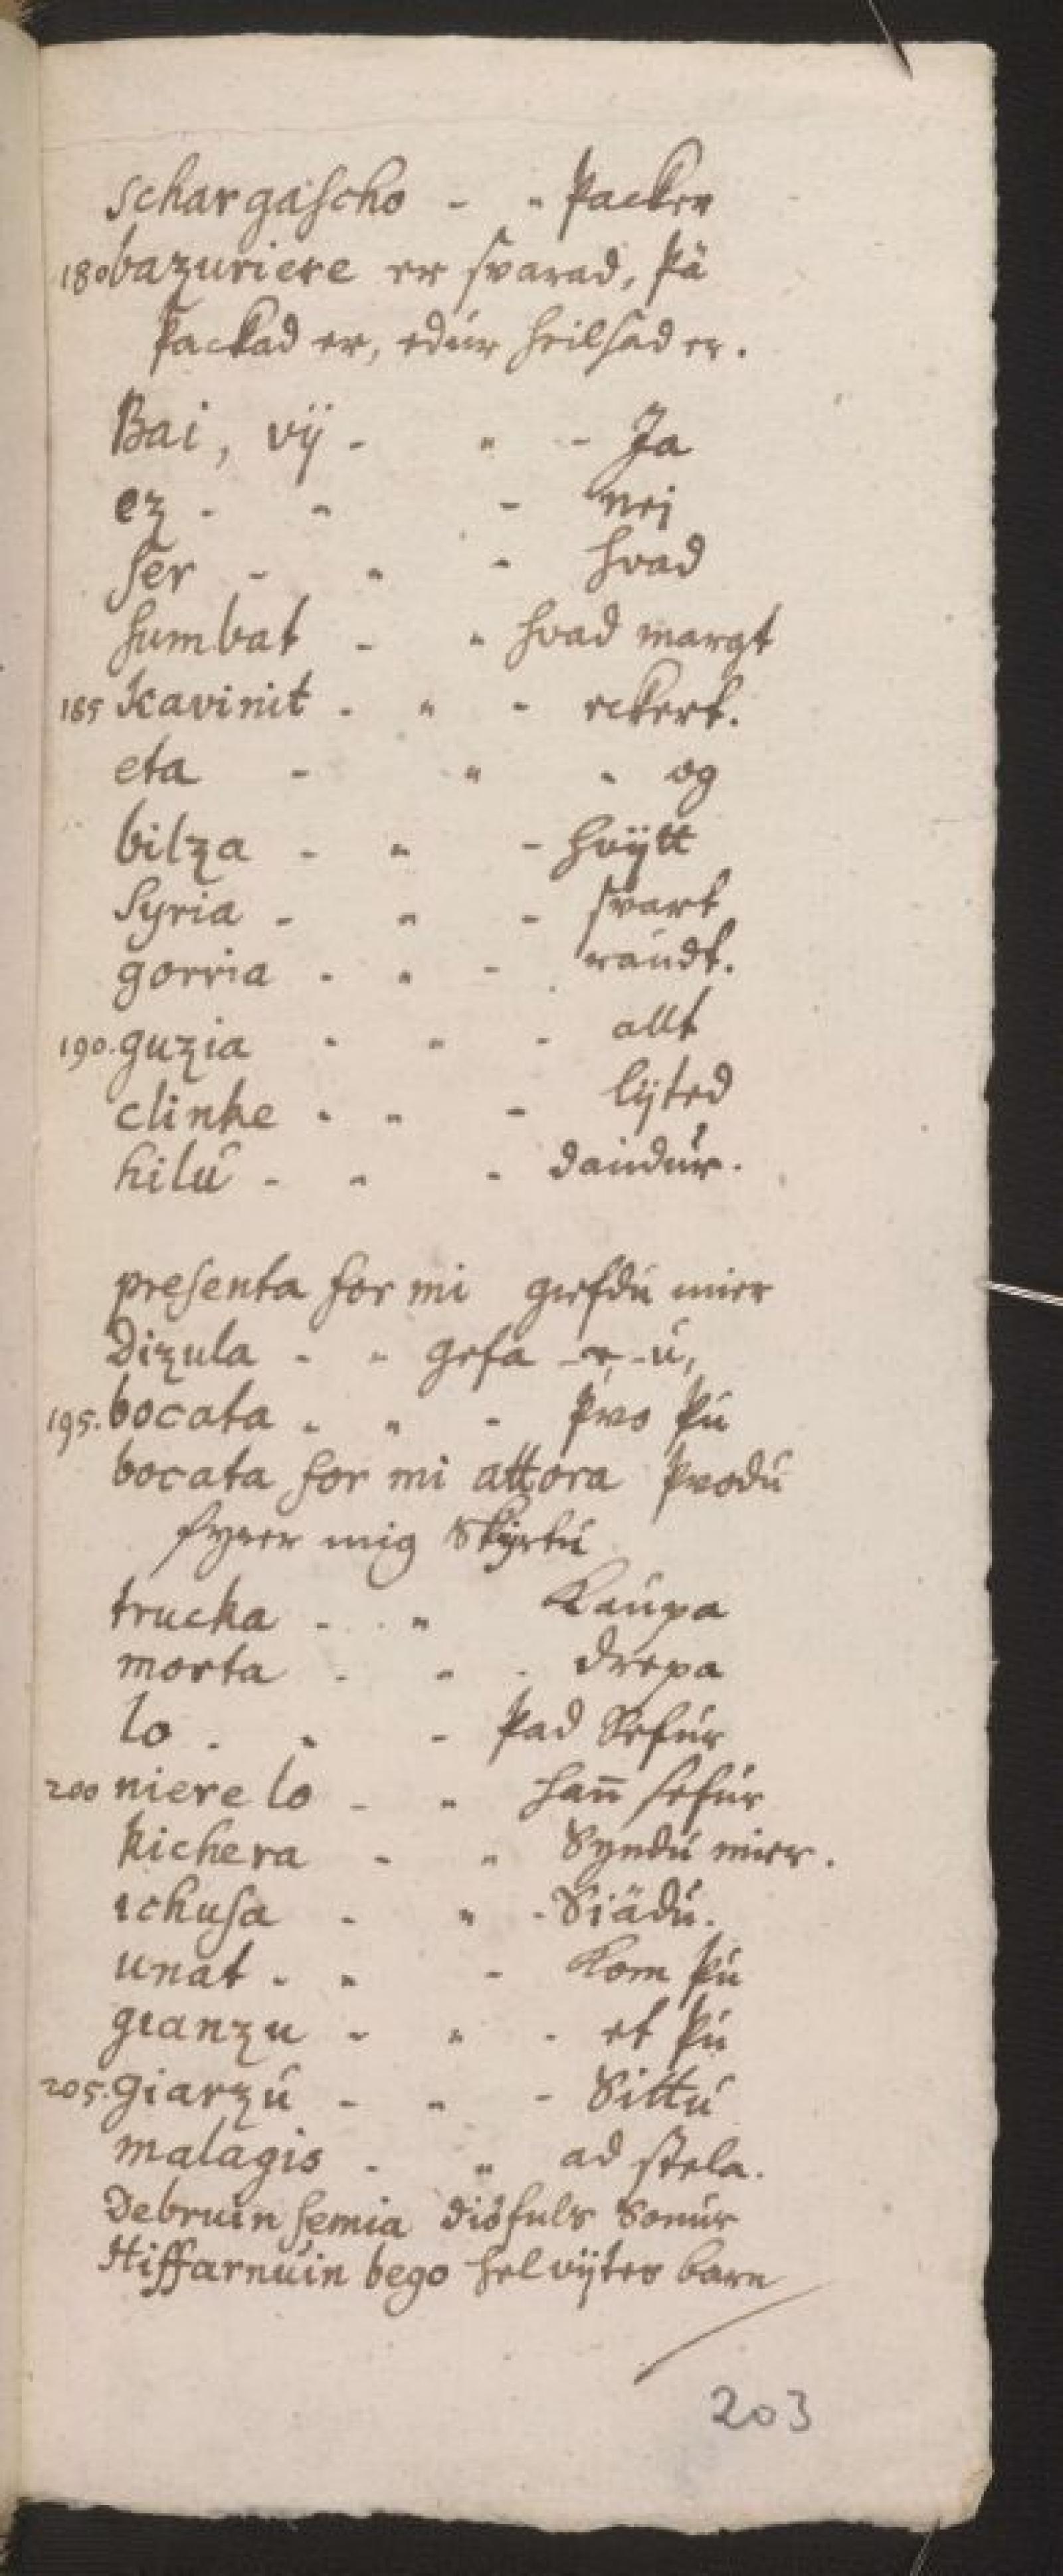 schargascho - - Packer
180 bazuriere er svarad, Þä
Þackad er, edúr heilsad er.
Bai, vÿ - - - Ja
ez - - - nei
ser - - - hvad
sumbat - - hvad margt
185 Kavinit - - - eckert.
eta - - - og
bilza - - - hvÿtt
Syria - - - svart
gorria - - - raúdt.
190. guzia - - - allt
clinke - - - lÿted
hilú - - - daúdúr.
presenta for mi giefdú mier
Dizula - - gefa - r, - ú,
195. bocata - - - Þvo Þú
bocata for mi attora Þvodú
fyrer mig Skÿrtú
trucka - - Kaúpa
morta - - - drepa
lo - - - Þad Sefúr
200 niere lo - - han̄ sefúr
kichera - - Syndú mier.
ichusa - - - Siädú.
unat - - - Kom Þú
gianzu - - - et Þú
205. giarzú - - - Sittú
malagis - - ad stela.
Debruin semia diöfuls Sonúr
Hiffarnúin bego helvÿtes barn
203